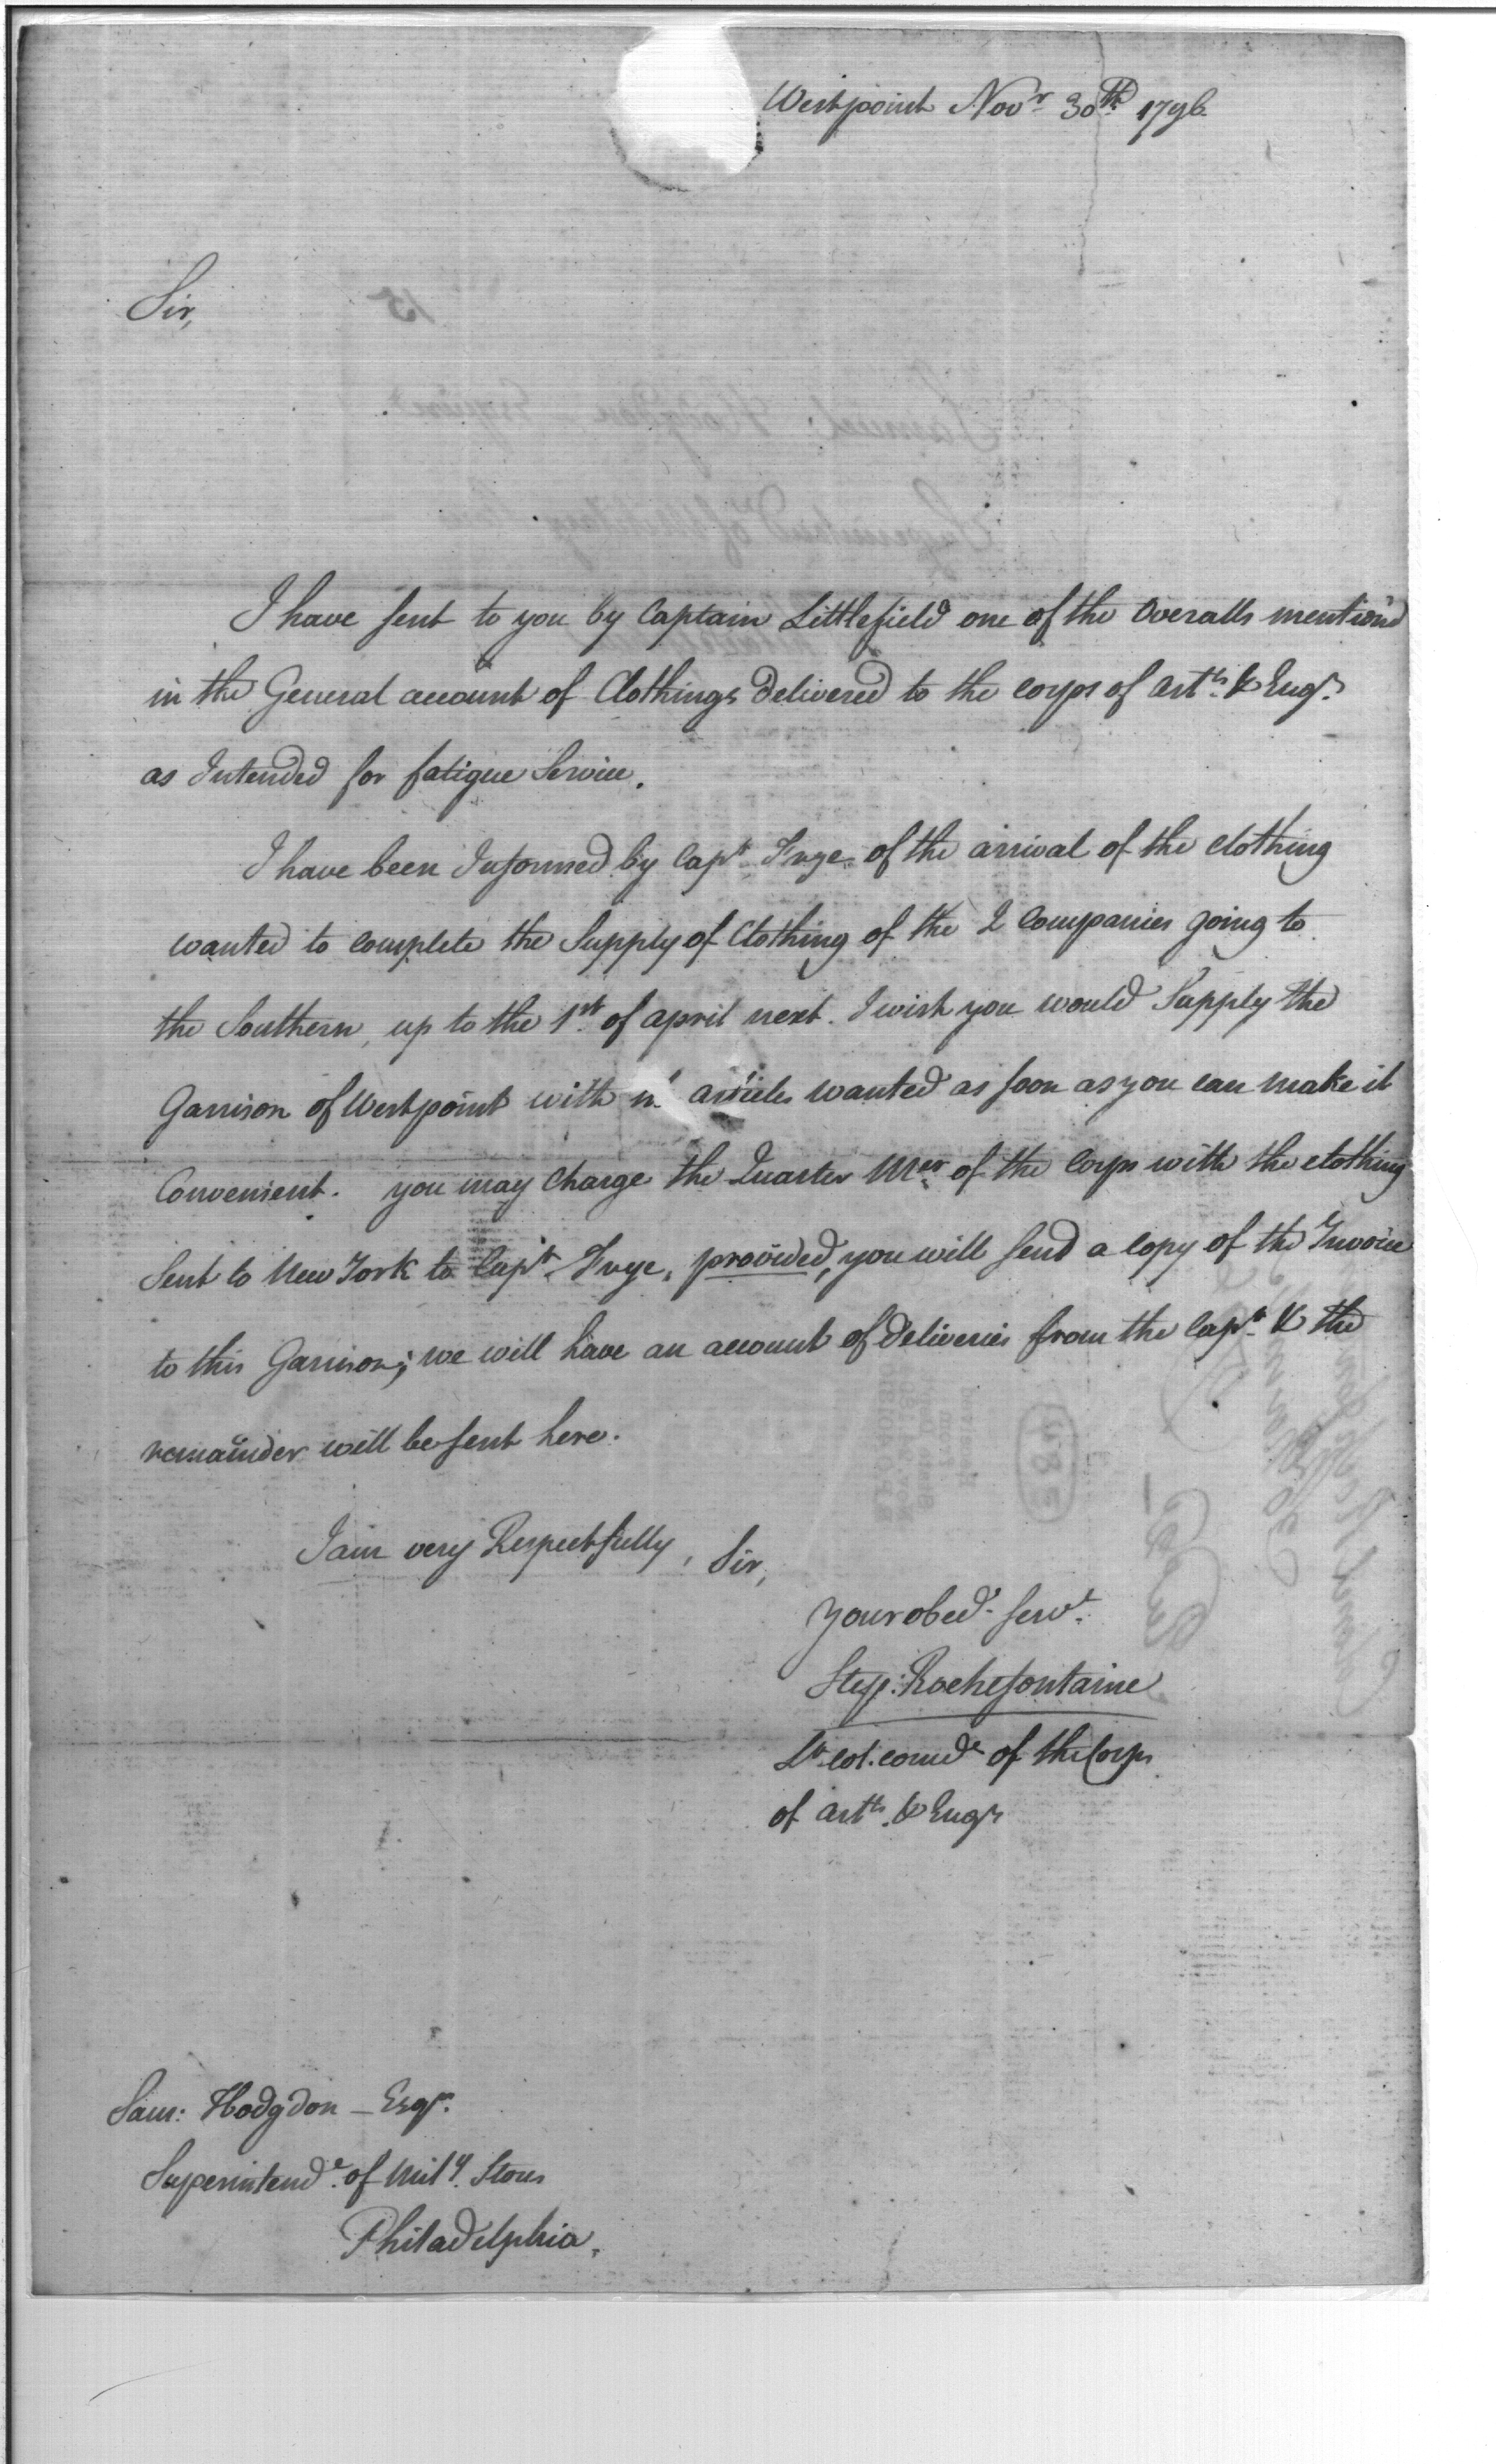 Westpoint Novr 30th 1796.
Sir,
I have sent to you by Captain Littlefield one of the Overalls mention'd
in the General account of Clothings delivered to the corps of Artts & Engrs
as Intended for fatigue Service.
I have been Informed by Capt Frye of the arrival of the clothing
wanted to complete the Supply of Clothing of the 2 Companies going to
the Southern, up to the 1st of april next. I wish you would Supply the
Garrison of Westpoint with articles wanted as soon as you can make it
Convenient. you may charge the Quarter Mer of the Corps with the clothing
sent to New York to Capt Frye, provided, you will send a copy of the Invoice
to this Garrison; we will have an account of deliveries from the Capt & the
remainder will be sent here.
I am very Respectfully, Sir,
your obedt servt
Step: Rochefontaine
Lt col. comdt of the Corps
of artts & Engrs
Sam: Hodgdon — Esqr.
Superintendt of Mily. Stores
Philadelphia.